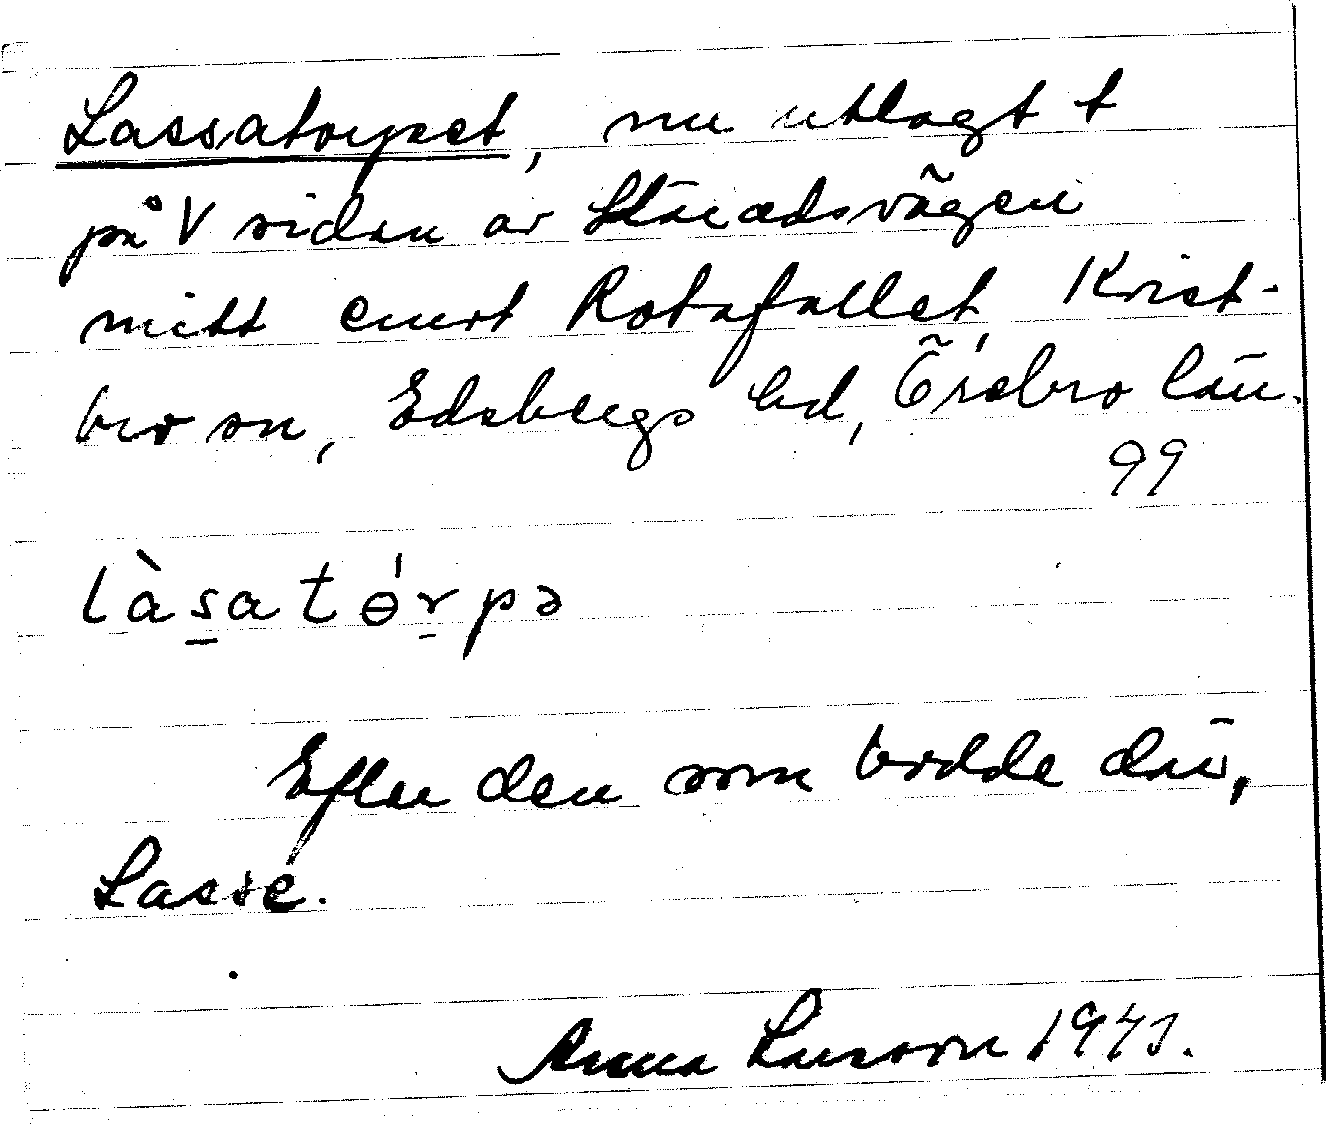 Lassatorpet, nu utlagt t
på V sidan av Häradsvägen
mitt emot Rotafallet, Krist-
bro sn, Edsbergs hd, Örebro län.
99
làsatɵ́rpə
Efter den som bodde där,
Lasse.
Anna Larsson